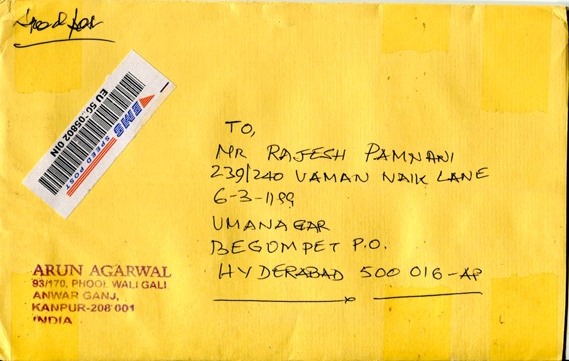 Speed post
EU 50-05802 0IN
EMS
SPEED POST
TO,
MR RAJESH PAMNANI
239/240 VAMAN NAIK LANE
6-3-1199
UMANAGAR
BEGUMPET P.O.
HYDERABAD 500 016-AP
ARUN AGARWAL
93/170, PHOOL WALI GALI
ANWAR GANJ,
KANPUR-208 001
INDIA